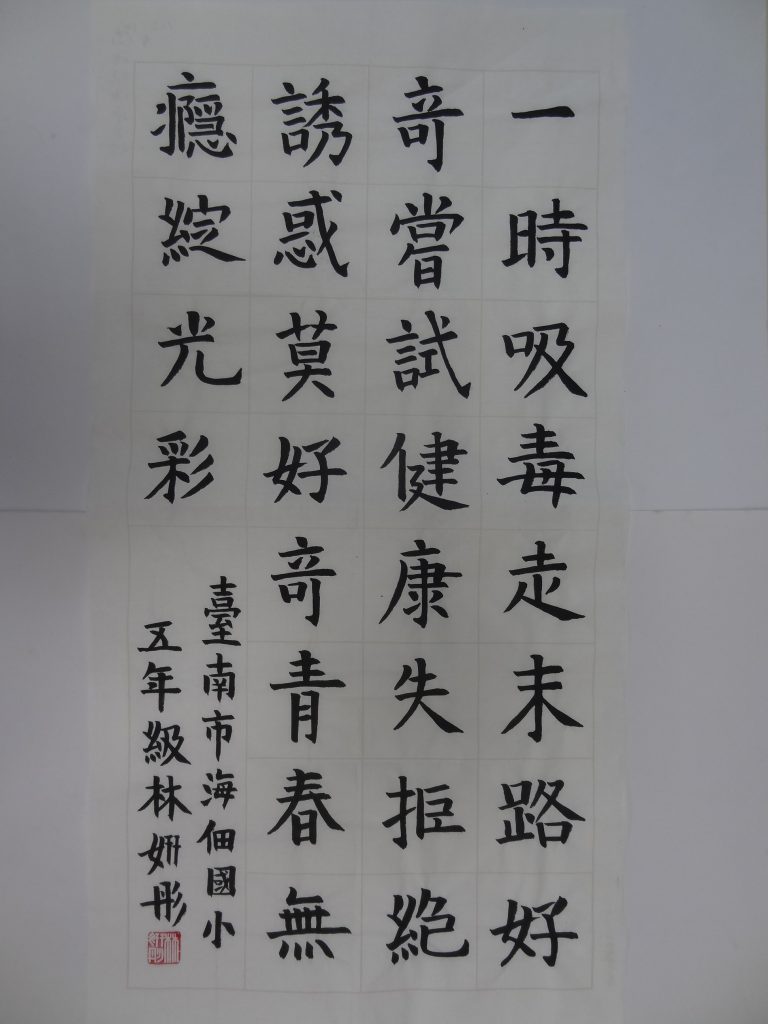 一時吸毒走末路好
奇嘗試健康失拒絕
誘惑莫好奇青春無
癮綻光彩
臺南市海佃國小
五年級林妍彤